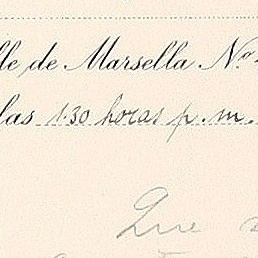 lle de Marsella Nº
las 1.30 horas p.m.
Que